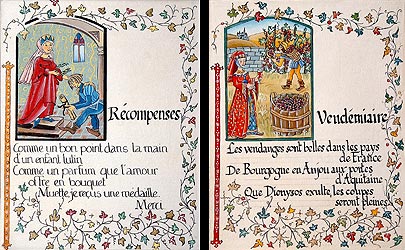 Récompenses
Comme un bon point dans la main
d'un enfant lutin
Comme un parfum que l'amour
offre en bouquet
Muette je reçus une médaille.
Merci
Vendémiaire
Les vendanges sont belles dans les pays
de France
De Bourgogne en Anjou aux portes
d'Aquitaine
Que Dionysos exulte, les coupes
seront pleines